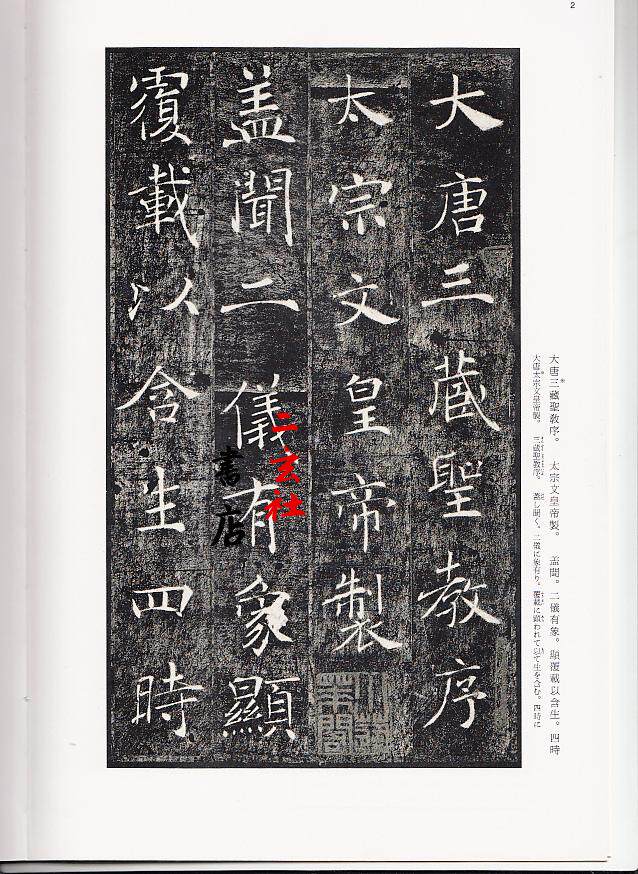 2
大唐三蔵聖教序
太宗文皇帝製
盖聞二儀有象顯
覆載以含生四時
二玄社
書店
大唐三藏聖教序。 太宗文皇帝製。 盖聞。二儀有象。顯覆載以含生。四時
大唐太宗文皇帝製。 三蔵聖教序。 蓋し聞く、二儀に象有り。覆載に顕われて以て生を含む。四時に